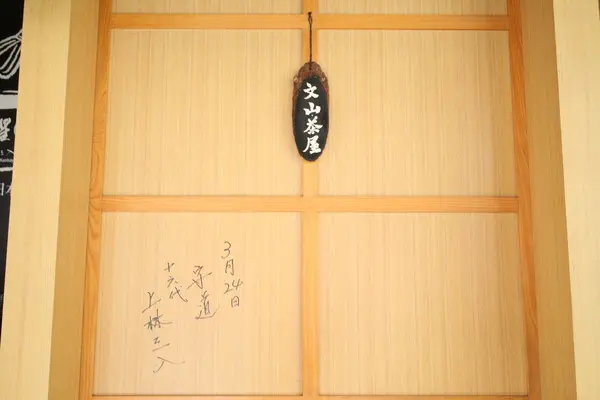 文山茶屋
3月24日
宇道
十六代
上林三入